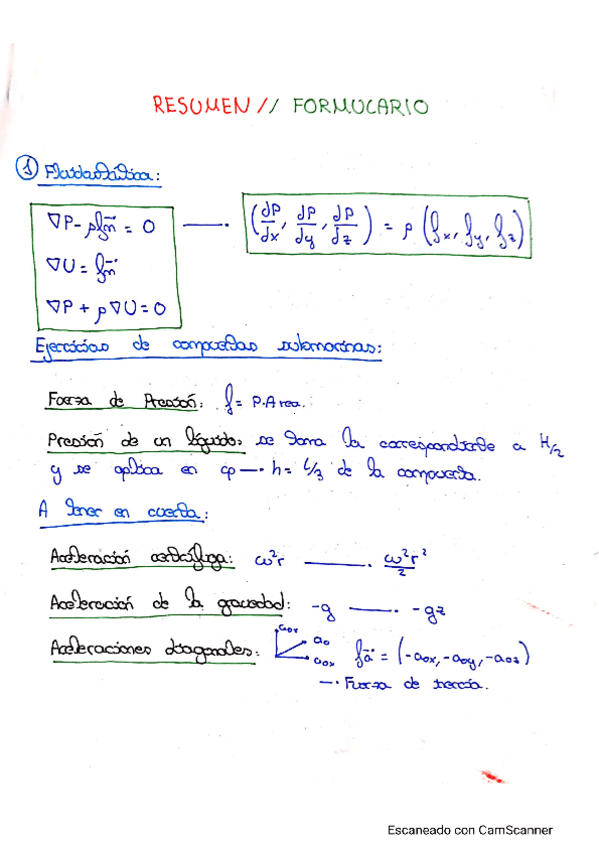 RESUMEN // FORMULARIO
① Fluidostática:
∇P - ρf⃗m = 0 —— (dP/dx, dP/dy, dP/dz) = ρ (fx, fy, fz)
∇U = f⃗m
∇P + ρ∇U = 0
Ejercicios de compuertas submarinas:
Fuerza de Presión: f = P.Area.
Presión de un líquido: se toma la correspondiente a H/2
y se aplica en cp —· h = L/3 de la compuerta.
A tener en cuenta:
Aceleración centrífuga: ω²r ——. ω²r²/2
Aceleración de la gravedad: -g ——. -gz
Aceleraciones diagonales: a₀ₓ a₀ f⃗a = (-a₀x, -a₀y, -a₀z)
—· Fuerza de inercia.
Escaneado con CamScanner